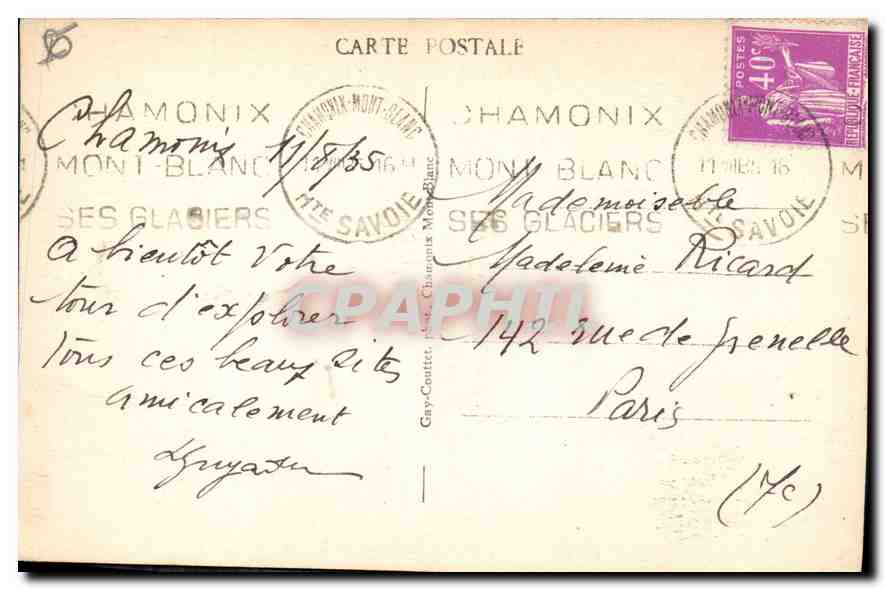 CARTE POSTALE
POSTES
40c
REPUBLIQUE FRANÇAISE
CHAMONIX
MONT-BLANC
SES GLACIERS
CHAMONIX-MONT-BLANC
16H
HTE SAVOIE
CHAMONIX
MONT BLANC
SES GLACIERS
CHAMONIX-MONT-BLANC
11 16
HTE SAVOIE
MO
SE
Chamonix 11/8/35
A bientôt Votre
tour d'explorer
tous ces beaux sites
amicalement
Gay-Couttet, phot., Chamonix Mont-Blanc
Mademoiselle
Madeleine Ricard
142 rue de Grenelle
Paris
(7e)
CPAPHIL